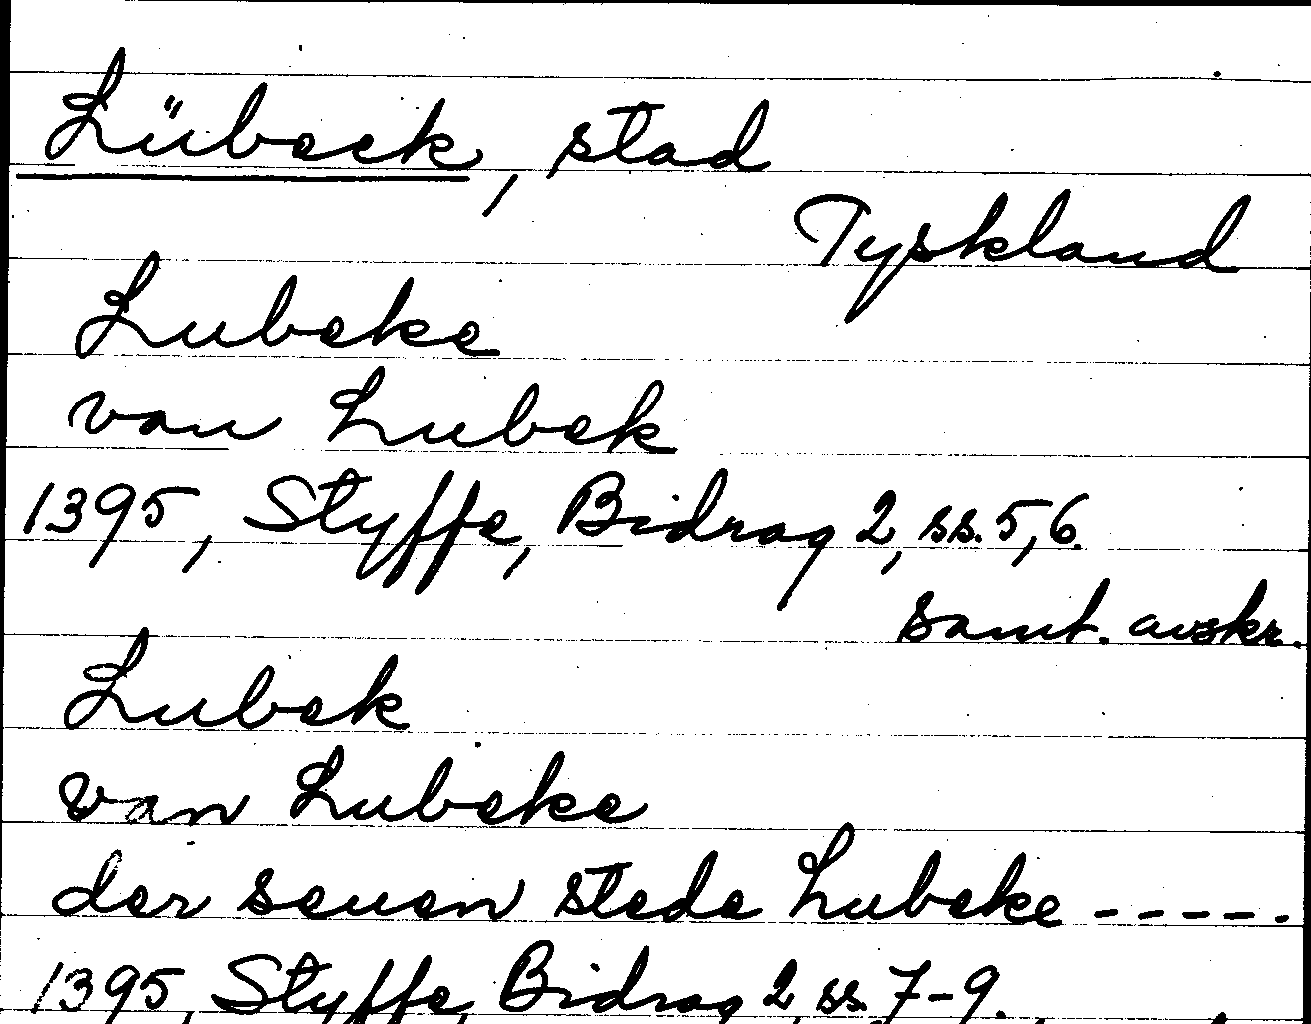 Lübeck, stad
Tyskland
Lubeke
van Lubek
1395, Styffe, Bidrag 2, ss. 5, 6.
samt. avskr.
Lubek
van Lubeke
der seuen stede Lubeke - - - - -
1395, Styffe, Bidrag 2, ss. 7-9.